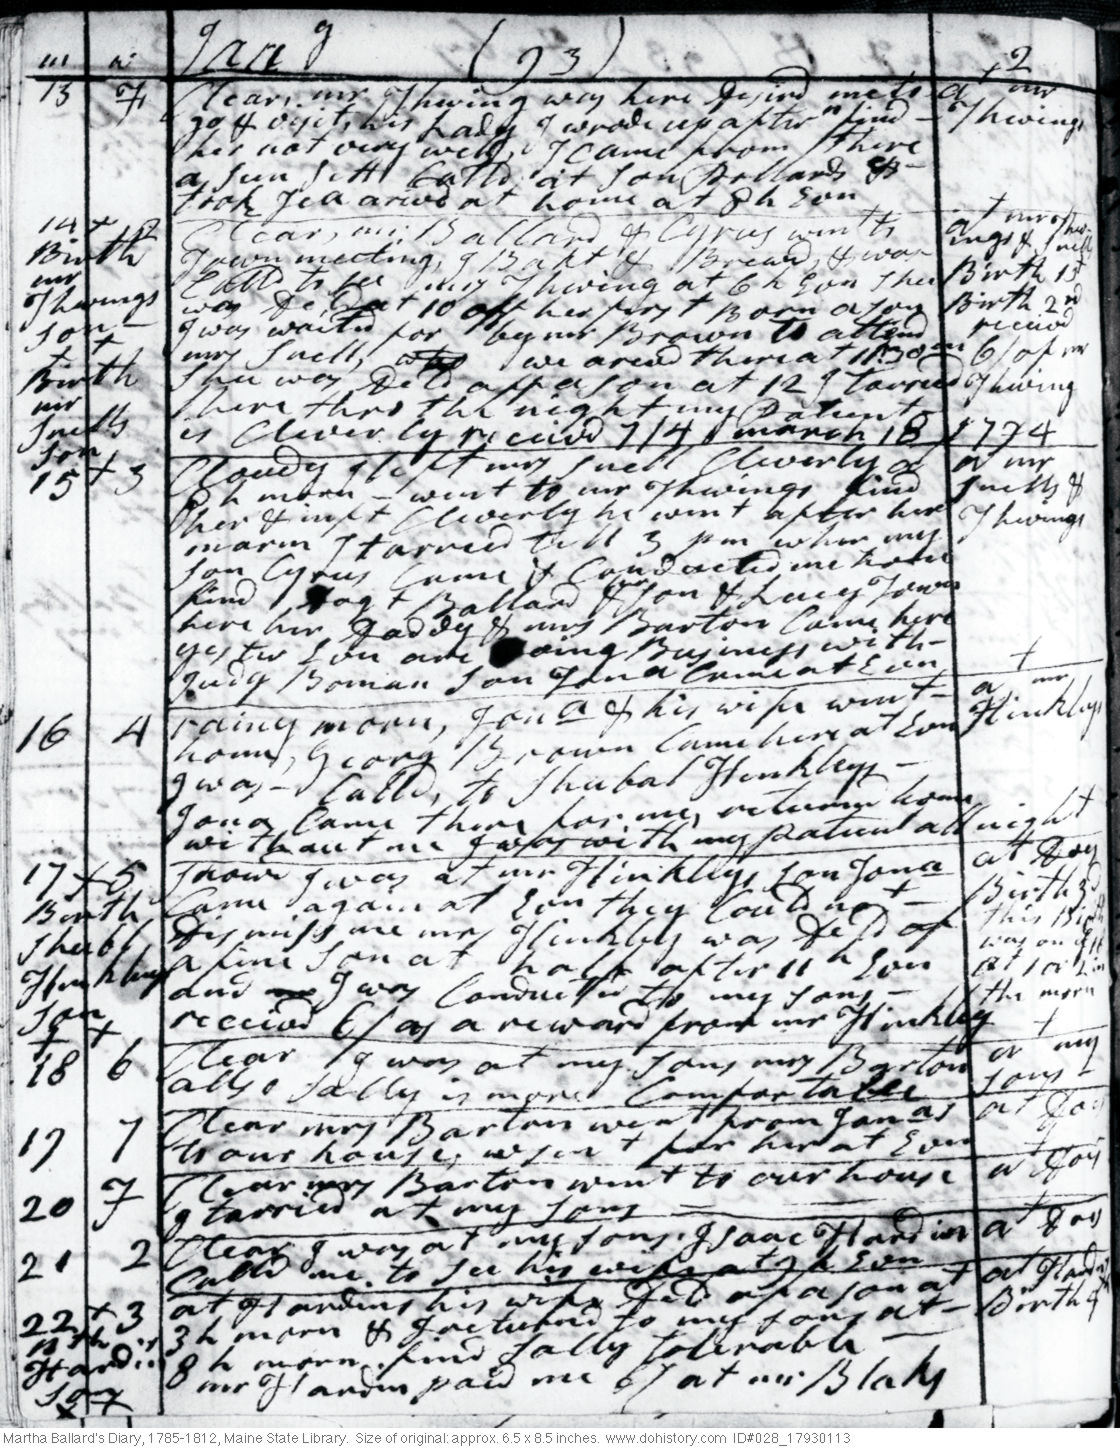 m w Jan g (93) 2
13 F Clear, mr Thwing was here desird me to a mr
go & visit his Lady I wrode up after n find Thwings
her not very well, I came from there
a sun sett Calld at Son Pollards &
took Tea arivd at home at 8 h Evn
14 + 2 Clear, mr Ballard & Cyrus went to at mr Thwings & Snells
Birth town meeting, I Bakt & Brewd, & was Birth 1st
mr Calld to see mrs Thwing at 6 h Evn Shee Birth 2nd
Thwings was Deld at 10 off her first Born a son
Son I was waited for by mr Brown to attend receivd
+ mrs Snell, we arivd there at 11:30 6/ of mr
Birth Shee was Deld off a son at 12 I tarried Thwing
mr there thro the night my Patient
Snells is Cleverly receivd 7/4 march 18 1794
Son
15 + 3 Cloudy I left mrs Snell Cleverly at a mr
h morn - went to mr Thwings find Snells &
her & inft Cleverly he went after her Thwings
marm I tarried till 3 pm when my
son Cyrus Came & Conducted me home
find Dagt Ballard & Son & Lucy Town
here her Daddy & mrs Barton Came here
yester Evn are doing Business with
Judg Boman Son Jona Came at Evn
16 4 rainy morn, Jona & his wife went a mr
home, Georg Brown Came here at Evn Hinkleys
I was Calld, to Shubal Hinkleys
Jona Came there for me, returnd home
without me I was with my patient all night
17 + 5 Snow I was at mr Hinkleys Son Jona at Do
Birth Came again at Evn they Could not Birth 3d
Shubl Dismiss me mrs Hinkley was Deld of this Birth
Hinkleys a fine Son at half after 11 h Evn was on
Son and I was Conducted to my sons at 1 or 2 in
+ receivd 6/ as a reward from mr Hinkley the morn
18 6 Clear I was at my Sons mrs Barton at my
allso Sally is more Comfortable sons
19 7 Clear mrs Barton went from Jonas at Do
to our house, went for her at Evn
20 F Clear mrs Barton went to our house at Do
I tarried at my Sons
21 2 Clear I was at my sons, Isaac Hardin at Do
Calld me to see his wife at h Evn
22 + 3 at Hardins his wife Deld of a son at at Hard
Birth 3 h morn & I returnd to my sons at Birth 4
Hardins 8 h morn, find Sally Tolerable
Son mr Hardin paid me 6/ at mr Blaks
Martha Ballard's Diary, 1785-1812, Maine State Library. Size of original: approx. 6.5 x 8.5 inches. www.dohistory.com ID#028_17930113